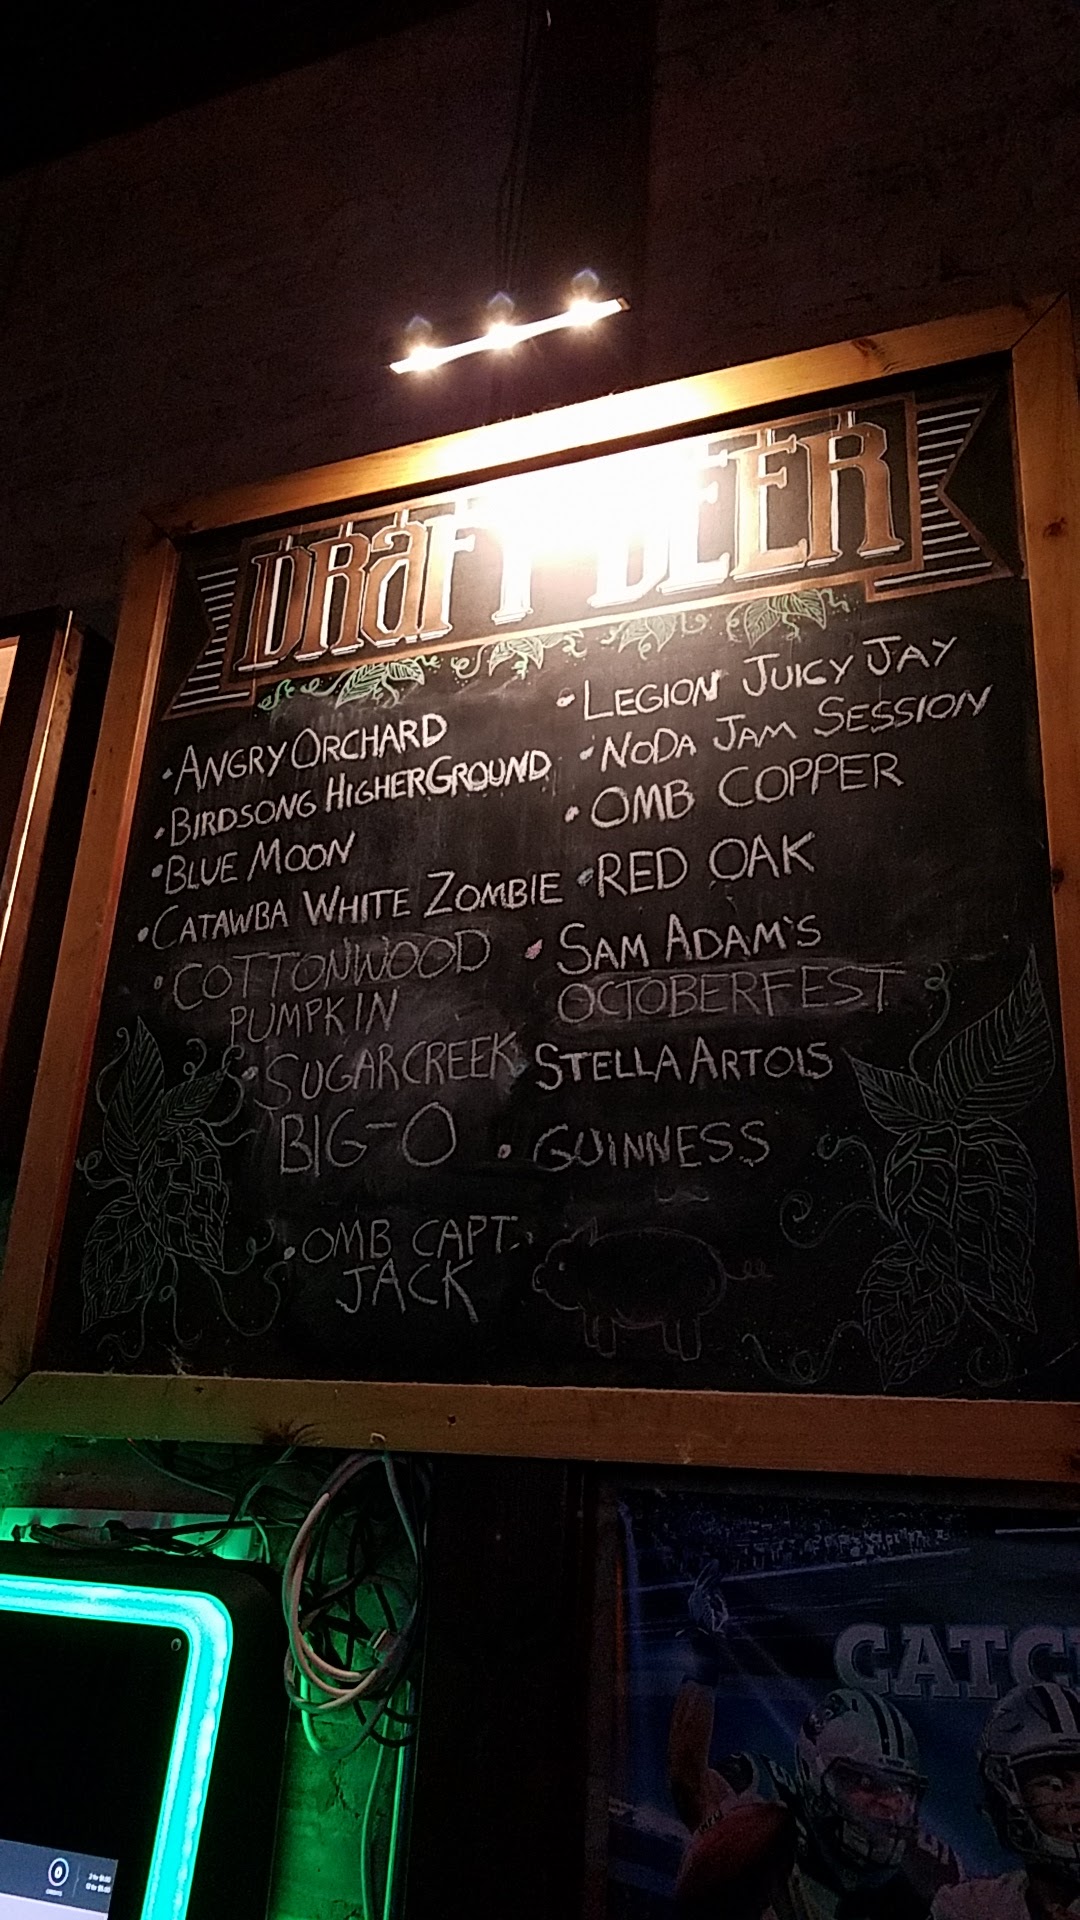 DRAFT BEER
• ANGRY ORCHARD
• BIRDSONG HIGHERGROUND
• BLUE MOON
• CATAWBA WHITE ZOMBIE
• COTTONWOOD
PUMPKIN
• SUGARCREEK
BIG-O
• OMB CAPT.
JACK
• LEGION JUICY JAY
• NODA JAM SESSION
• OMB COPPER
• RED OAK
• SAM ADAM'S
OCTOBERFEST
STELLA ARTOIS
• GUINNESS
CATC